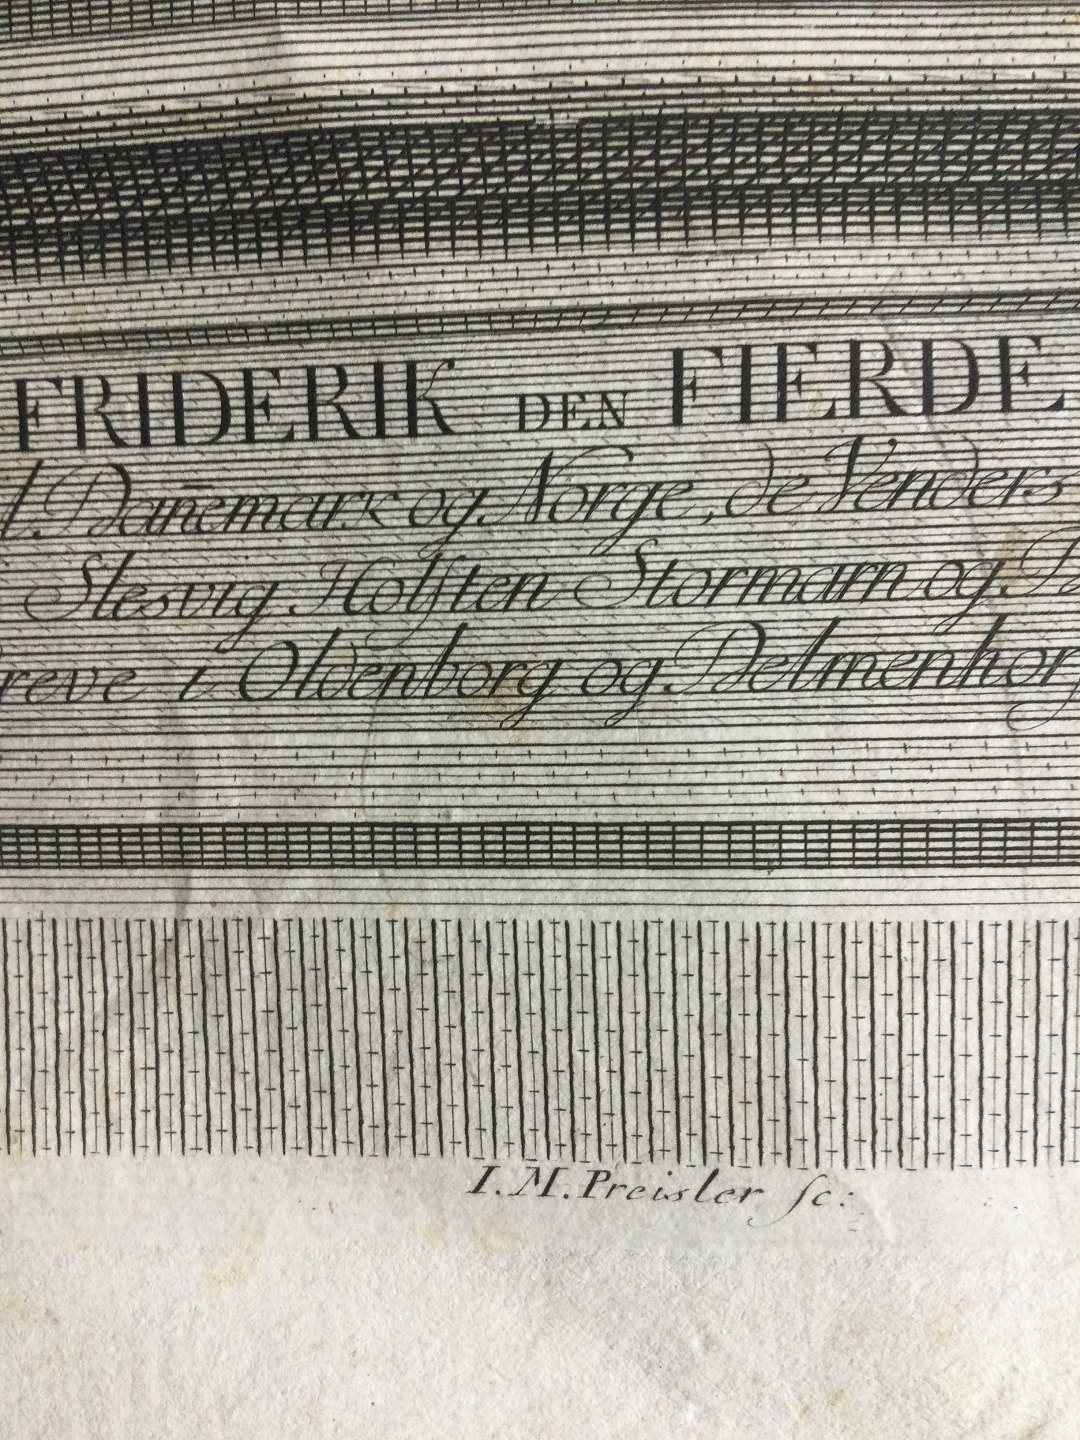 FRIDERIK DEN FIERDE
Dan̄emark og Norge, de Venders
Slesvig Holſten Stormarn og
reve i Oldenborg og Delmenhorſ
I. M. Preisler ſc: